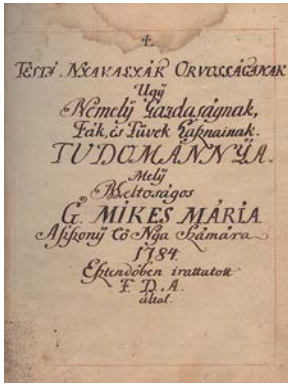 I.
TESTI NYAVALYÁK ORVOSSÁGÁNAK
Ugy
Némely Gazdaságnak,
Fák, és Füvek Hasznainak.
TUDOMÁNNYA.
Mely
Meltoságos
G. MIKES MÁRIA
Aſszony Eö Nga Számára
1784.
Esztendöben irattatott
F. D. A.
által.